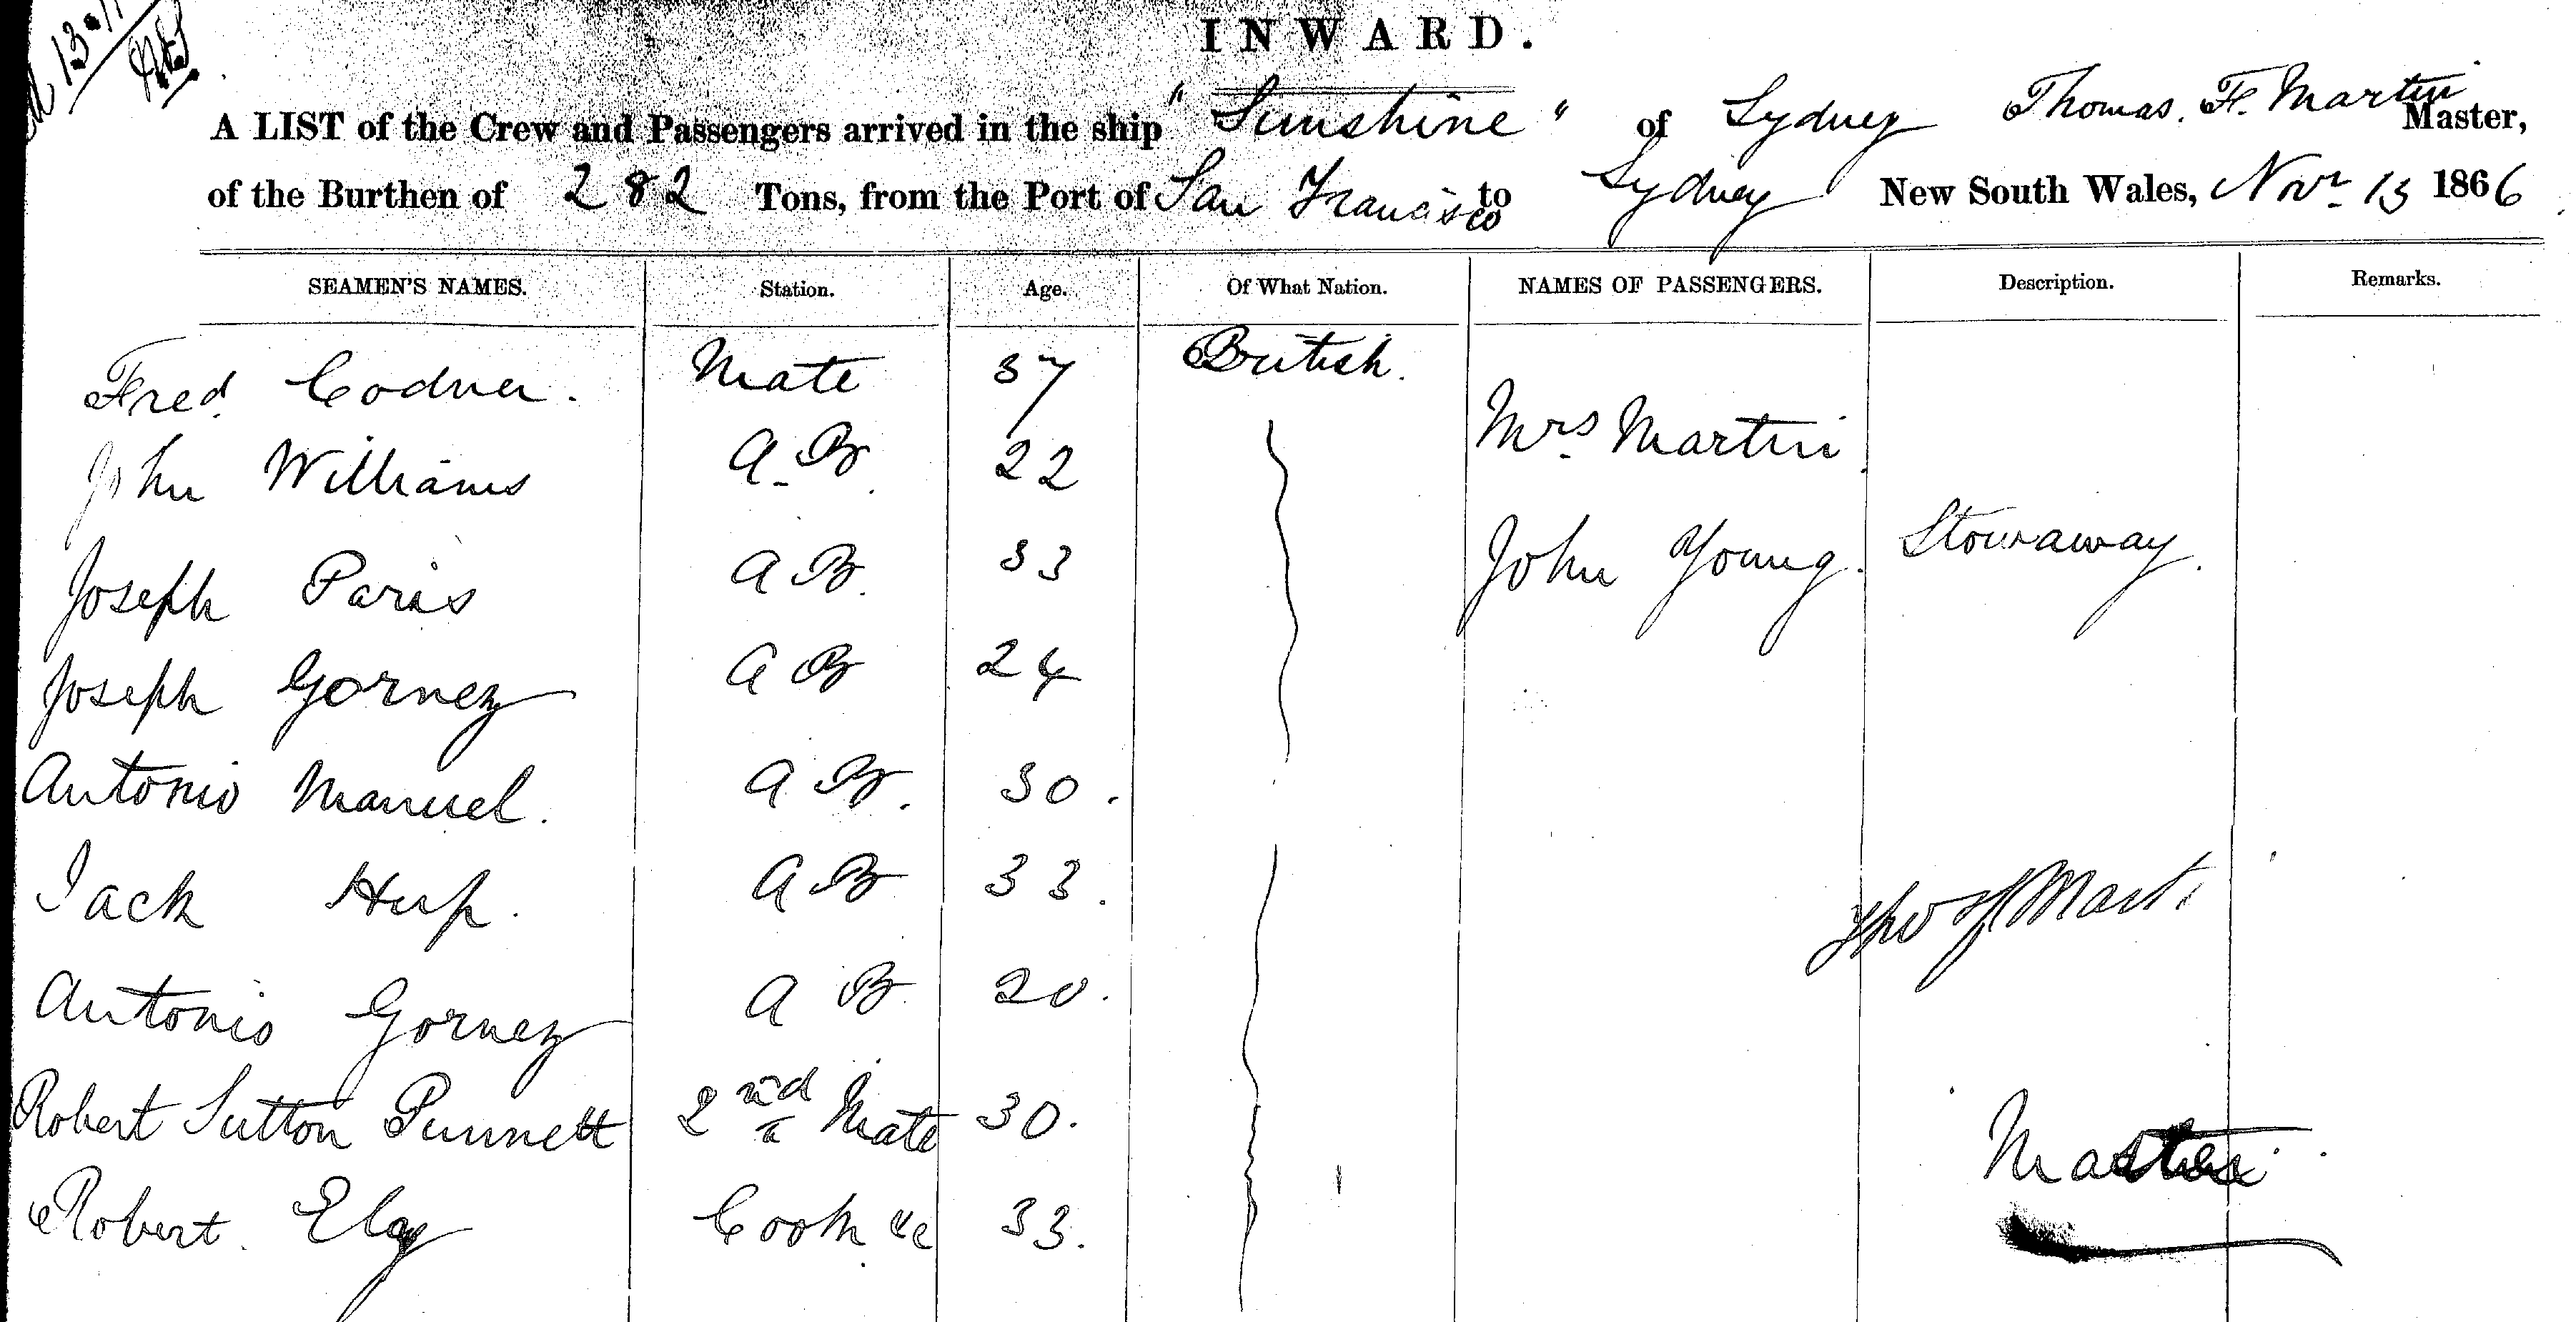 INWARD.
A LIST of the Crew and Passengers arrived in the ship "Sunshine" of Sydney Thomas. F. Martin Master,
of the Burthen of 282 Tons, from the Port of San Francisco to Sydney New South Wales, Novr 13 1866
SEAMEN'S NAMES. Station. Age. Of What Nation. NAMES OF PASSENGERS. Description. Remarks.
Fred. Codner. Mate 37 British.
Mrs Martin
John Williams A.B. 22
Joseph Paris A B. 33 John Young. Stowaway.
Joseph Gornez A B 24
Antonio Manuel. A B. 30.
Jack Hup. A B 33. Thos F Mart
Antonio Gornez A B 20.
Robert Sutton Punnett 2nd Mate 30.
Master
Robert. Elay Cook &c 33.